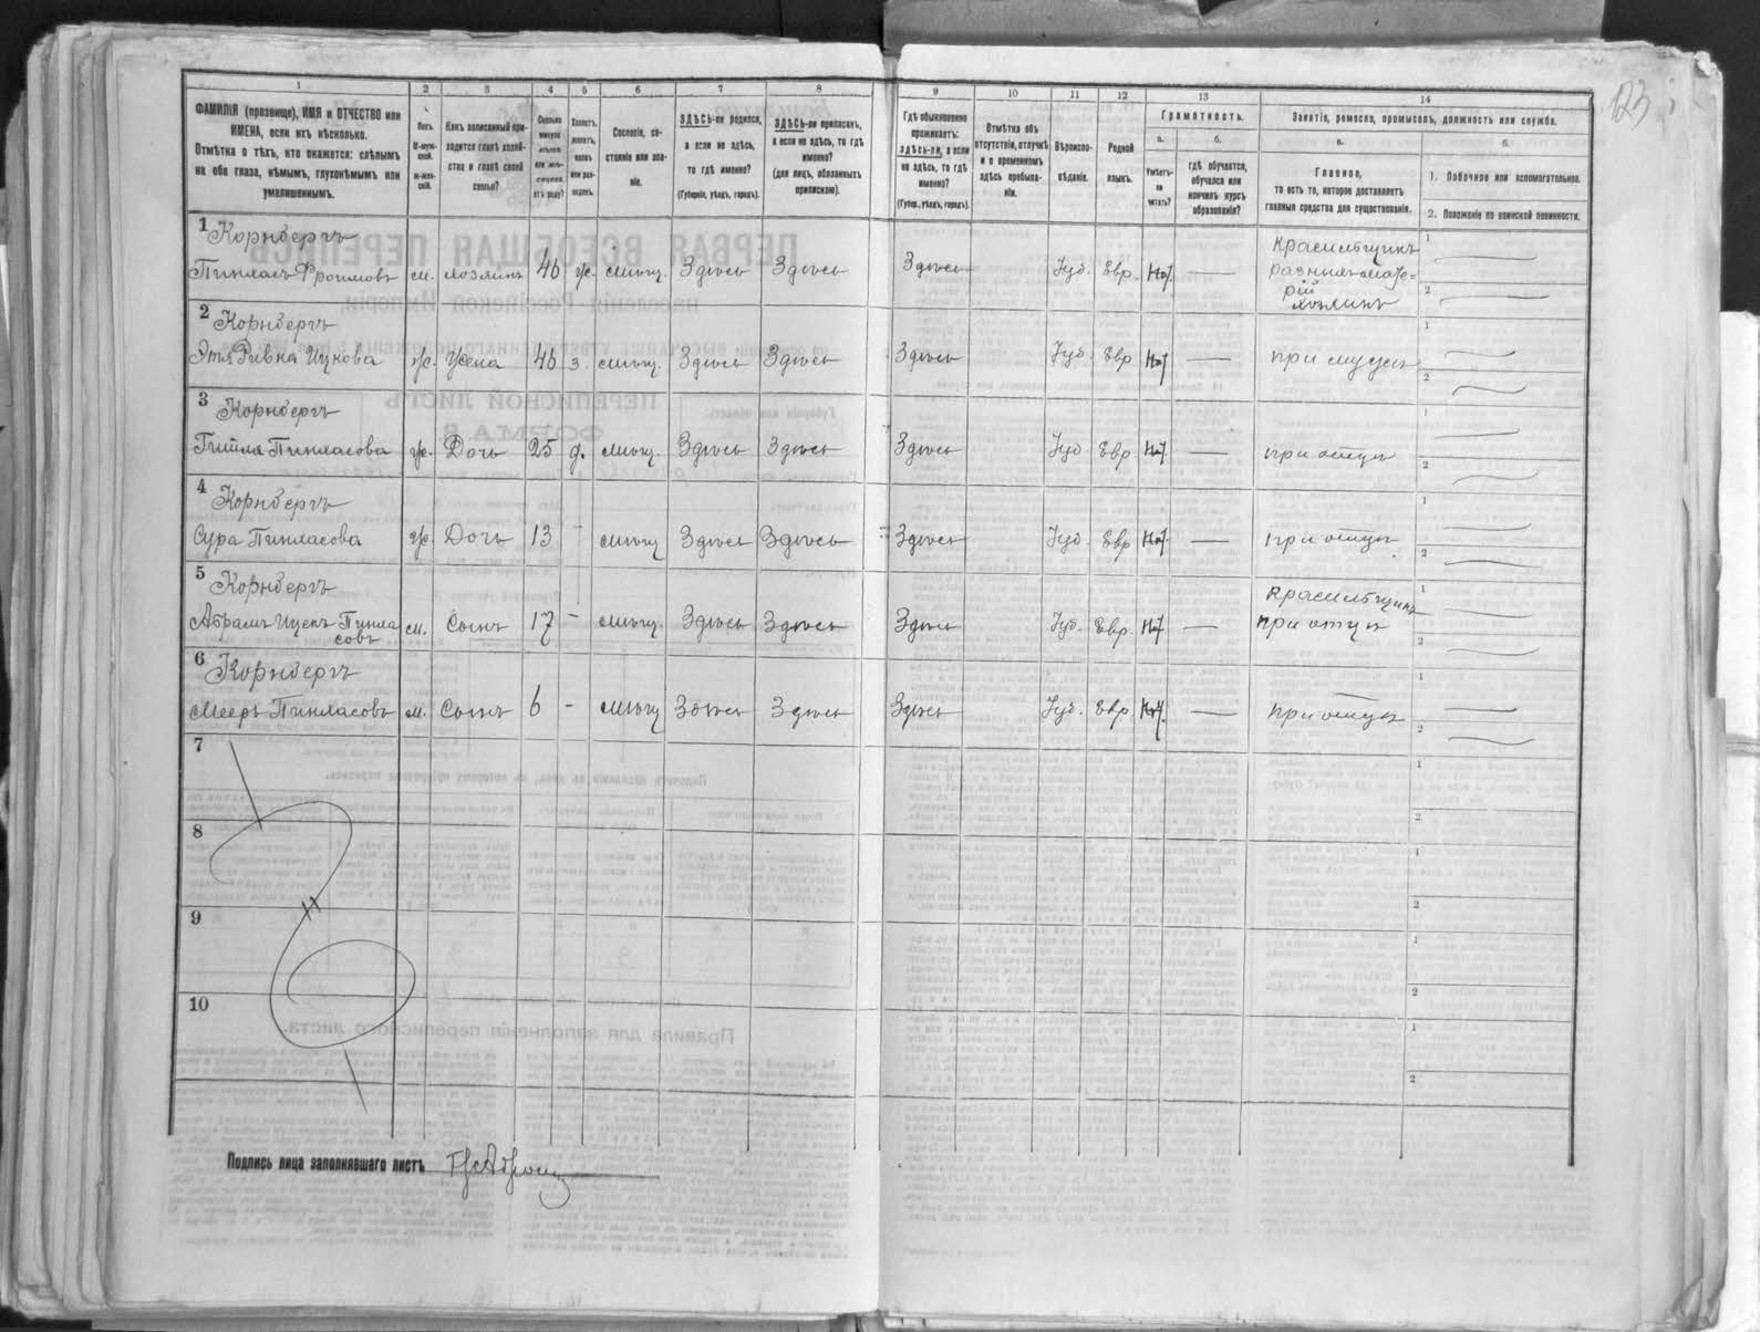 123
1 2 3 4 5 6 7 8 9 10 11 12 13 14
ФАМИЛІЯ (прозвище), ИМЯ и ОТЧЕСТВО или
ИМЕНА, если ихъ нѣсколько.
Отмѣтка о тѣхъ, кто окажется: слѣпымъ
на оба глаза, нѣмымъ, глухонѣмымъ или
умалишеннымъ.
Полъ.
М-муж-
ской.
Ж-жен-
скій.
Какъ записанный при-
ходится главѣ хозяй-
ства и главѣ своей
семьи?
Сколько
минуло
лѣтъ
или мѣ-
сяцевъ
отъ роду?
Холостъ,
женатъ,
вдовъ
или раз-
веденъ.
Сословіе, со-
стояніе или зва-
ніе.
ЗДѢСЬ-ли родился,
а если не здѣсь,
то гдѣ именно?
(Губернія, уѣздъ, городъ).
ЗДѢСЬ-ли приписанъ,
а если не здѣсь, то гдѣ
именно?
(для лицъ, обязанныхъ
припискою).
Гдѣ обыкновенно
проживаетъ:
ЗДѢСЬ-ли, а если
не здѣсь, то гдѣ
именно?
(Губер., уѣздъ, городъ).
Отмѣтка объ
отсутствіи, отлучкѣ
и о временномъ
здѣсь пребыва-
ніи.
Вѣроиспо-
вѣданіе.
Родной
языкъ.
Грамотность.
а.
Умѣетъ-
ли
читать?
б.
гдѣ обучается,
обучался или
кончилъ курсъ
образованія?
Занятіе, ремесло, промыселъ, должность или служба.
а.
Главное,
то есть то, которое доставляетъ
главныя средства для существованія.
б.
1. Побочное или вспомогательное.
2. Положеніе по воинской повинности.
1 Корнбергъ красильщикъ 1
Пинхасъ Фроимовъ м. хозяинъ 46 ж. мѣщ. Здѣсь Здѣсь Здѣсь Іуд. Евр. Нѣт —
хозяинъ 2
2 Корнбергъ 1
Этя Ривка Ицкова ж. Жена 46 з. мѣщ. Здѣсь Здѣсь Здѣсь Іуд. Евр Нѣт — при мужѣ 2
3 Корнбергъ 1
Гитля Пинхасова ж. Дочь 25 д. мѣщ. Здѣсь Здѣсь Здѣсь Іуд Евр Нѣт — при отцѣ 2
4 Корнбергъ 1
Сура Пинхасова ж. Дочь 13 - мѣщ Здѣсь Здѣсь Здѣсь Іуд Евр Нѣт — при отцѣ 2
5 Корнбергъ красильщикъ 1
Абрамъ Ицекъ Пинха м. Сынъ 17 - мѣщ. Здѣсь Здѣсь Здѣсь Іуд. Евр. Нѣт — при отцѣ
совъ 2
6 Корнбергъ 1
Мееръ Пинхасовъ м. Сынъ 6 - мѣщ Здѣсь Здѣсь Здѣсь Іуд. Евр Нѣт. — при отцѣ 2
7 1
2
8 1
2
9 1
2
10 1
2
Подпись лица заполнявшаго листъ